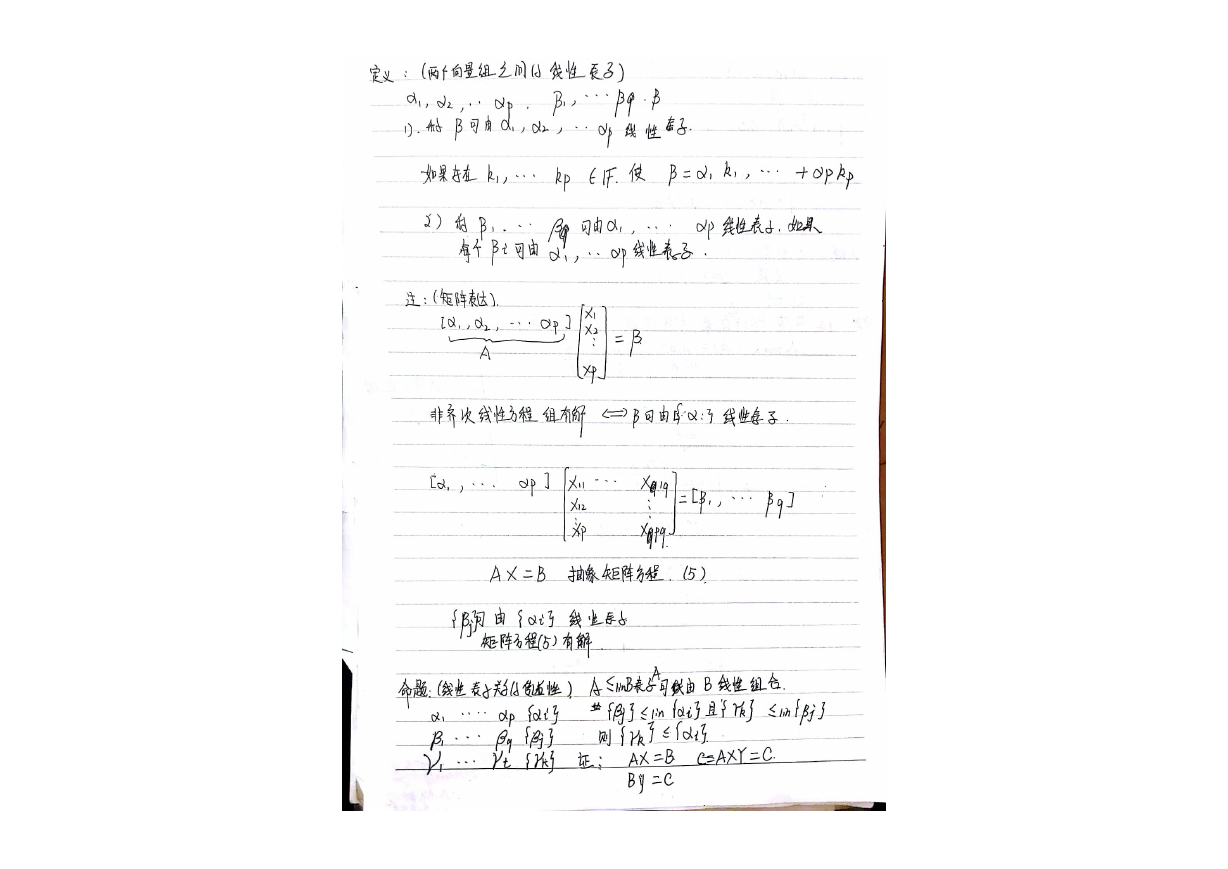 定义：(两个向量组之间的线性表示)
α₁, α₂, ‥ αp . β₁, ⋯ βq . β
1). 称 β 可由 α₁, α₂, ‥ αp 线性表示.
如果存在 k₁, ⋯ kp ∈ F. 使 β = α₁ k₁, ⋯ + αp kp
2) 称 β₁ . ⋯ βq 可由 α₁, ⋯ αp 线性表示. 如果
每个 βi 可由 α₁, ‥ αp 线性表示.
注：(矩阵表达).
[α₁, α₂, ⋯ αp] [x₁ x₂ ⋮ xp] = β
A
非齐次线性方程组有解 ⟺ β 可由{αi} 线性表示.
[α₁, ⋯ αp] [x₁₁ ⋯ x1q x₁₂ ⋮ xp xpq] = [β₁, ⋯ βq]
AX = B 抽象矩阵方程. (5)
{βj}可由 {αi} 线性表示
矩阵方程(5)有解
命题: (线性表示关系的传递性) A ≤ lin B表示 A 可由 B 线性组合.
α₁ ⋯ αp {αi} {βj} ≤ lin {αi} 且 {γk} ≤ lin {βj}
β₁ ⋯ βq {βj} 则 {γk} ≤ {αi}
γ₁ ⋯ γt {γk} 证: AX = B AXY = C.
BY = C